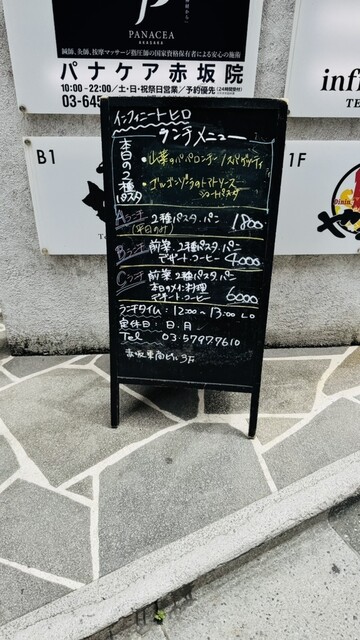 PANACEA
AKASAKA
鍼師、灸師、按摩マッサージ指圧師の国家資格保有者による安心の施術
パナケア赤坂院
10:00-22:00/土・日・祝祭日営業/予約優先
03-645
infi
B1
1F
インフィニートヒロ
ランチメニュー
本日の2種パスタ
・山菜のペペロンチーノスパゲッティ
・ゴルゴンゾーラのトマトソース
ショートパスタ
Aランチ 2種パスタ、パン 1800
(平日のみ)
Bランチ 前菜、2種パスタ、パン
デザート、コーヒー 4000
Cランチ 前菜、2種パスタ、パン
本日のメイン料理
デザート、コーヒー 6000
ランチタイム:12:00~13:00 LO
定休日:日・月
Tel 03-57977610
赤坂東商ビル3F